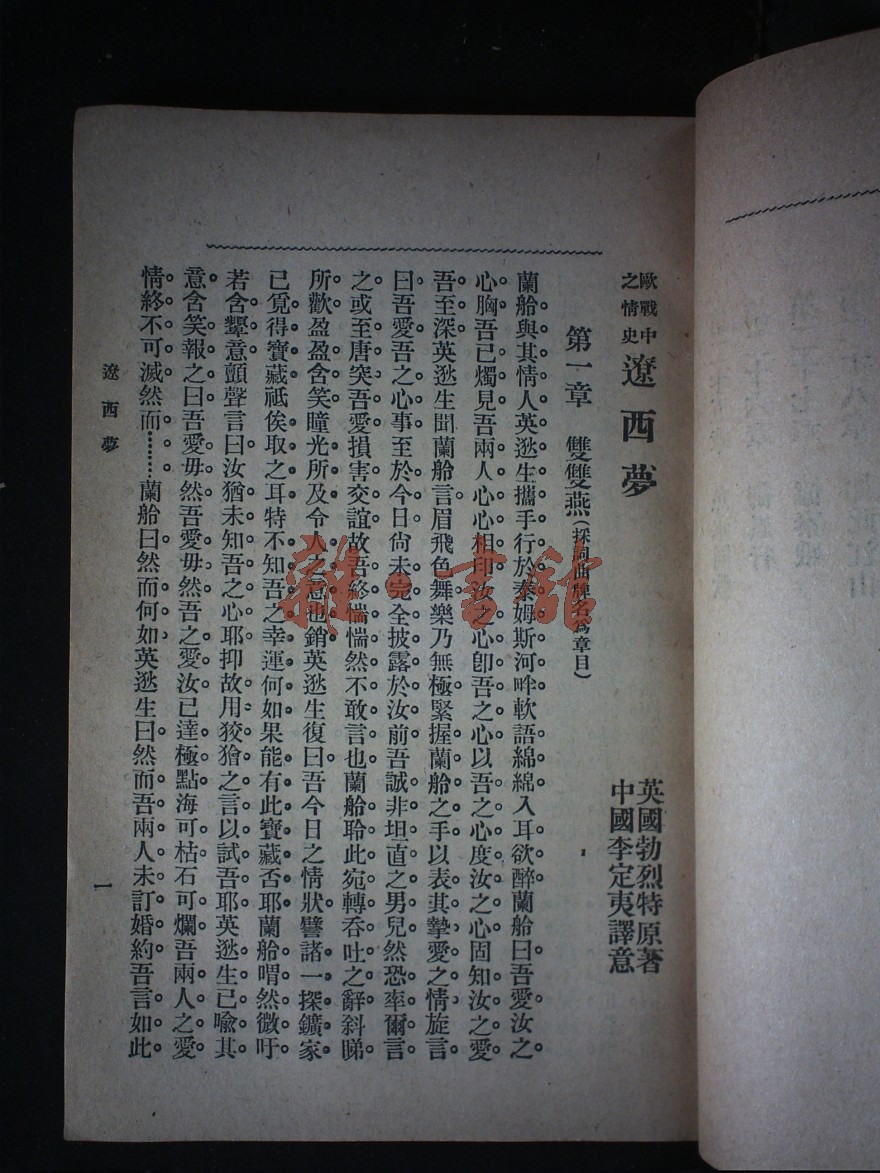 歐戰中
之情史
遼西夢
英國勃烈特原著
中國李定夷譯意
第一章　雙雙燕(採詞曲牌名爲章目)
蘭船與其情人英逖生攜手行於泰姆斯河畔軟語綿綿入耳欲醉蘭船曰吾愛汝之
心胸吾已燭見吾兩人心心相印汝之心卽吾之心以吾之心度汝之心固知汝之愛
吾至深英逖生聞蘭船言眉飛色舞樂乃無極緊握蘭船之手以表其摯愛之情旋言
曰吾愛吾之心事至於今日尙未完全披露於汝前吾誠非坦直之男兒然恐率爾言
之或至唐突吾愛損害交誼故吾終惴惴然不敢言也蘭船聆此宛轉吞吐之辭斜睇
所歡盈盈含笑瞳光所及令人之意也銷英逖生復曰吾今日之情狀譬諸一探鑛家
已覓得寶藏祗俟取之耳特不知吾之幸運何如果能有此寶藏否耶蘭船喟然微吁
若含顰意顫聲言曰汝猶未知吾之心耶抑故用狡獪之言以試吾耶英逖生已喩其
意含笑報之曰吾愛毋然吾愛毋然吾之愛汝已達極點海可枯石可爛吾兩人之愛
情終不可滅然而………蘭船曰然而何如英逖生曰然而吾兩人未訂婚約吾言如此
遼西夢
一
雜·書館